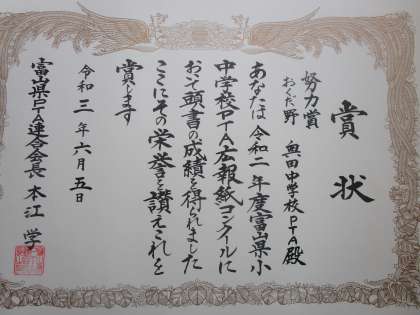 賞状
努力賞
おくだ野 奥田中学校PTA殿
あなたは 令和二年度富山県小
中学校PTA広報紙コンクールに
おいて頭書の成績を得られました
ここにその栄誉を讃えこれを
賞します
令和三年六月五日
富山県PTA連合会長 本江 学